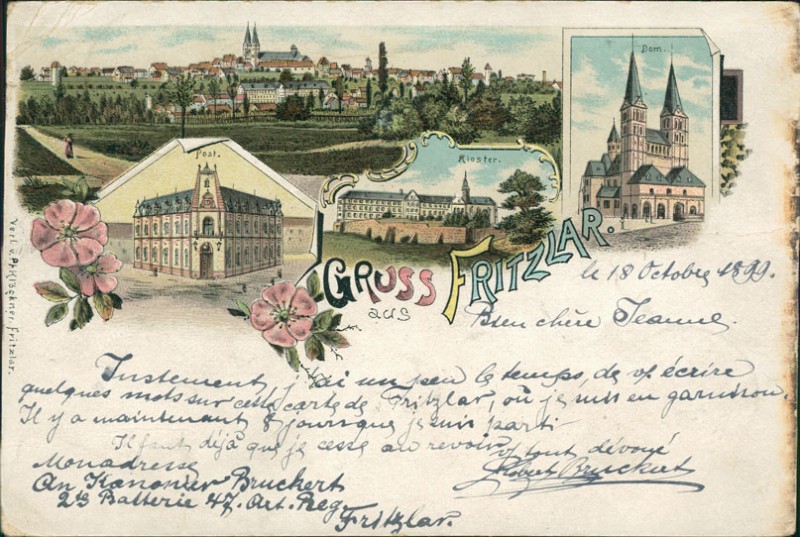 Dom.
Post.
Kloster.
GRUSS
aus
FRITZLAR.
Verl. v. Pr. Klackner, Fritzlar.
le 18 Octobre 1899.
Bien chère Jeanne.
Justement, j'ai un peu le temps, de vs écrire
quelques mots sur cette carte de Fritzlar, où je suis en garnison.
Il y a maintenant 8 jours que je suis parti
Il faut déjà que je cesse au revoir
vs tout dévoué
Robert Bruckert
Mon adresse
An Kanonier Bruckert
2ts Batterie 47. Art. Reg.
Fritzlar.